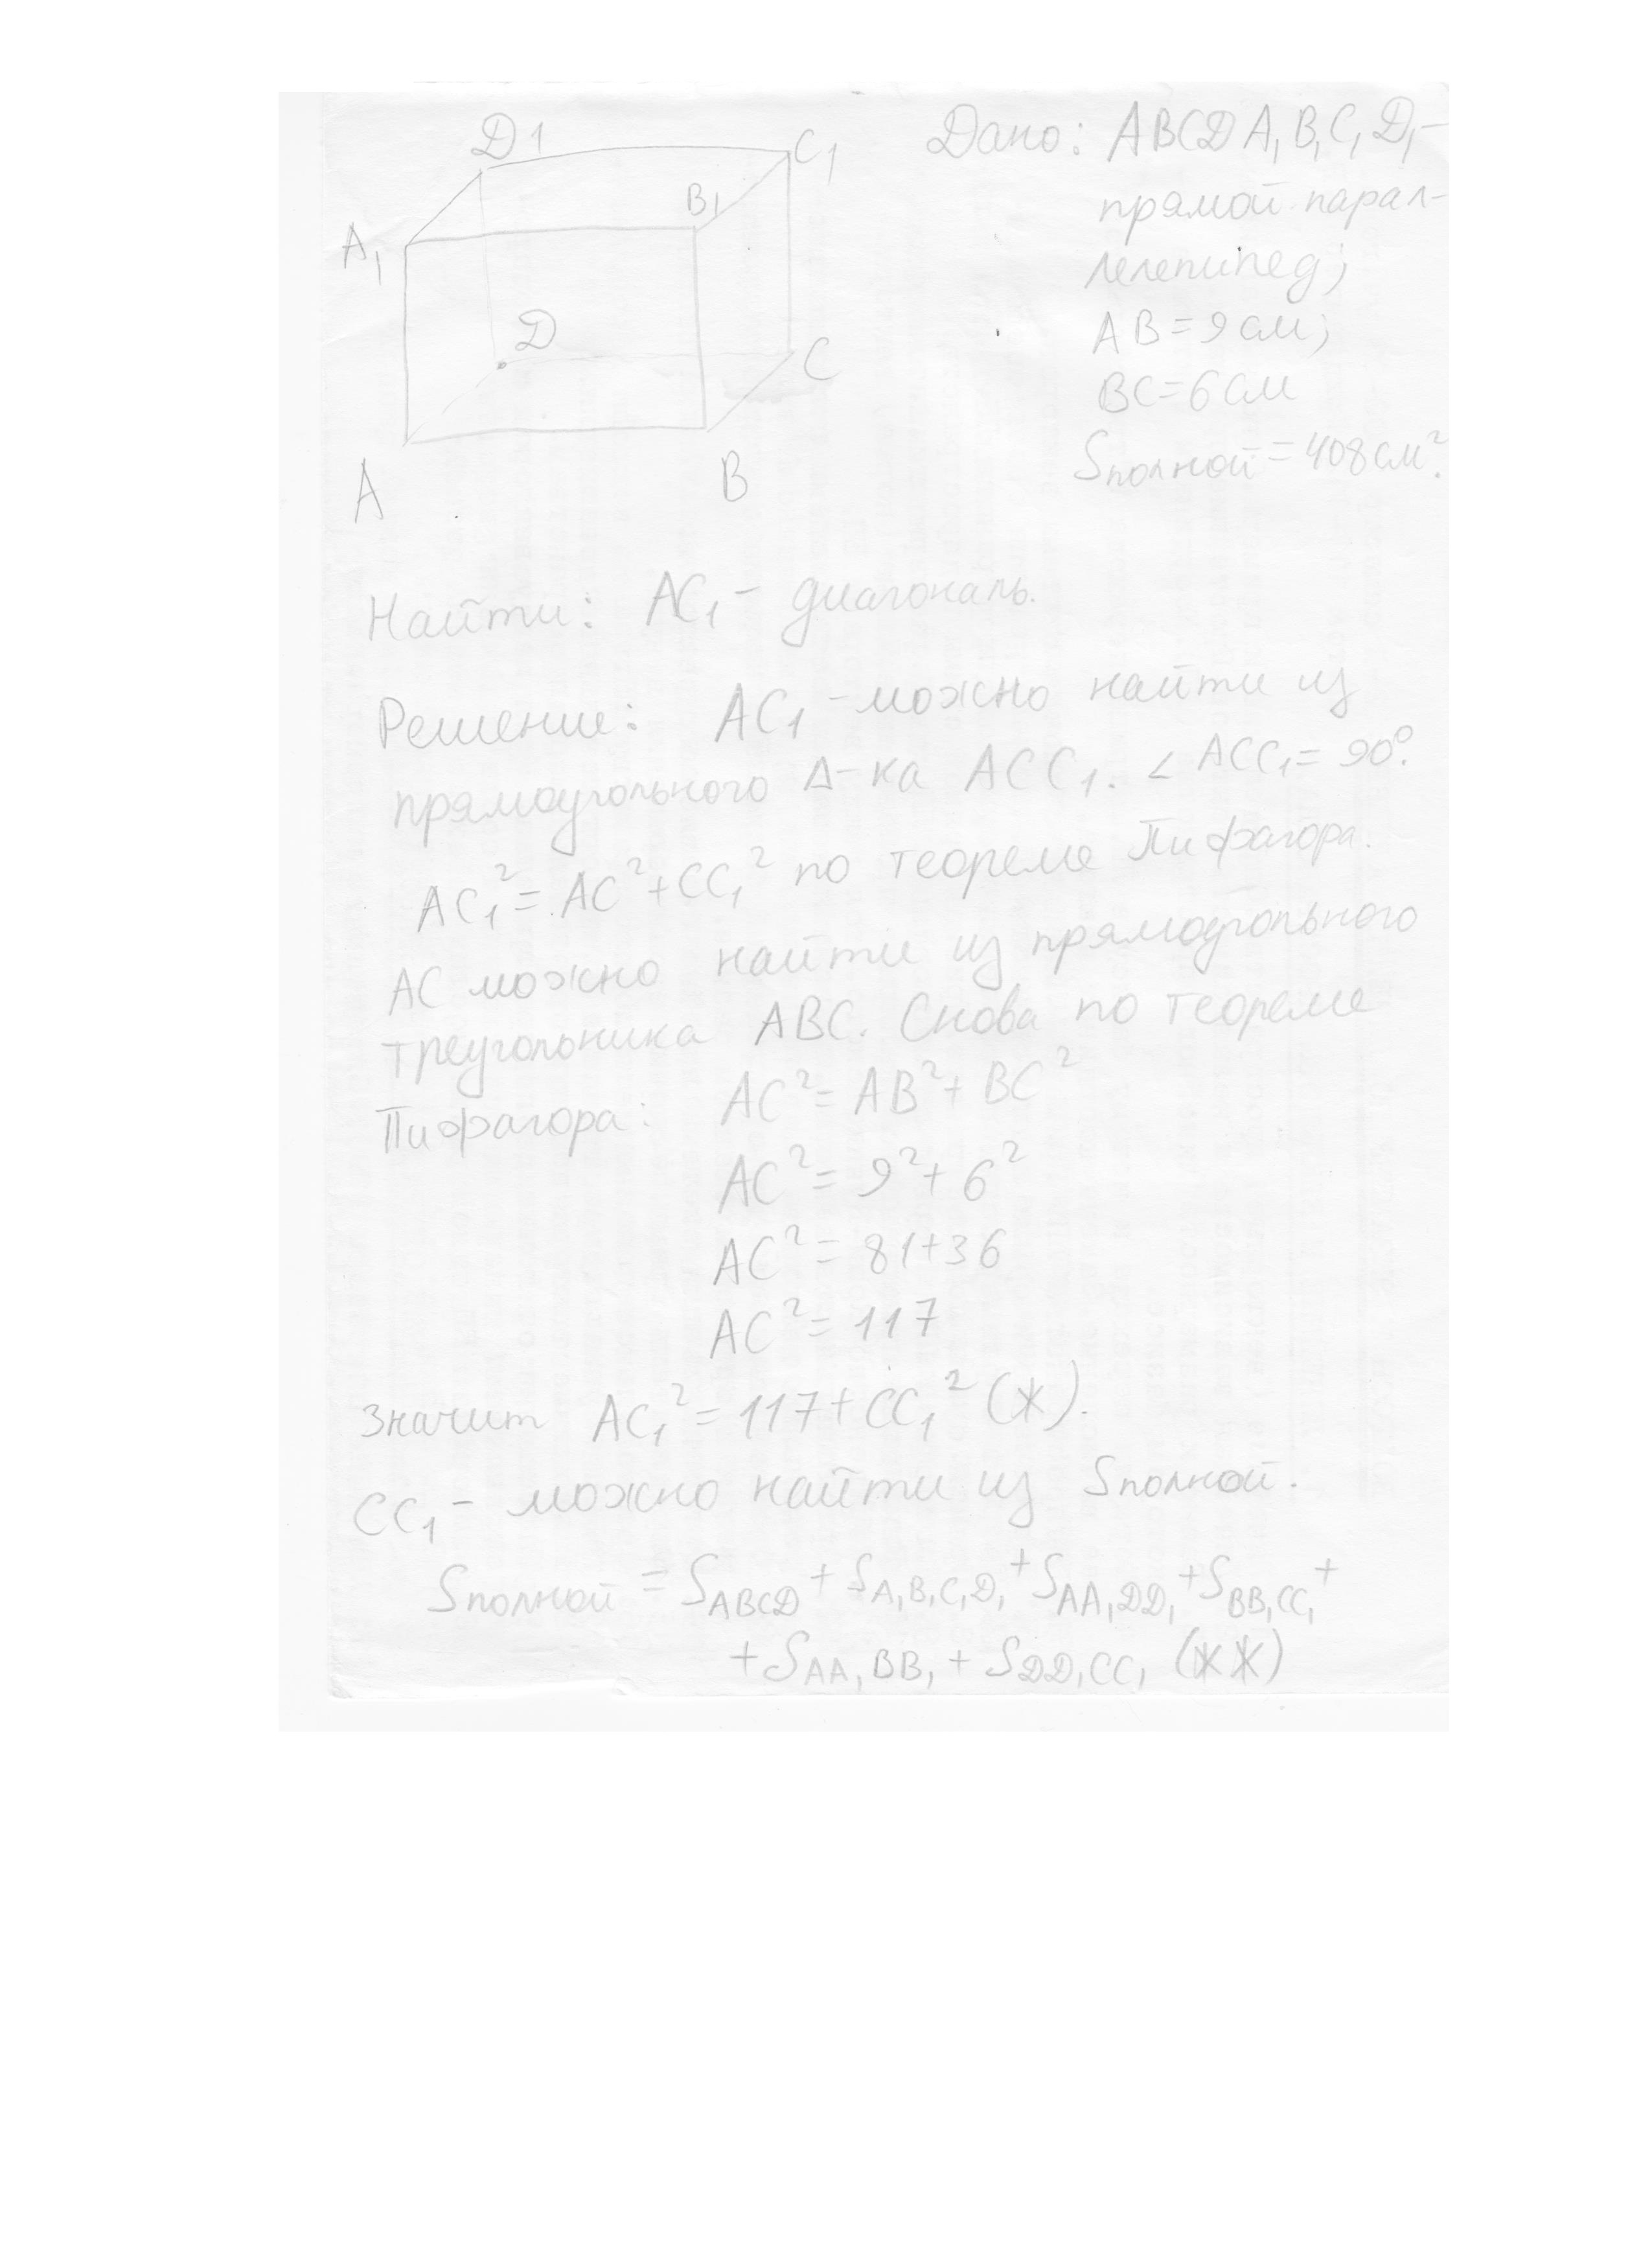 D1
C1
B1
A1
D
C
A
B
Дано: ABCDA1B1C1D1 –
прямой парал-
лелепипед;
AB = 9 см;
BC = 6 см
Sполной = 408 см².
Найти: AC1 – диагональ.
Решение: AC1 – можно найти из
прямоугольного Δ-ка ACC1. ∠ACC1 = 90°.
AC1² = AC² + CC1² по теореме Пифагора.
AC можно найти из прямоугольного
треугольника ABC. Снова по теореме
Пифагора: AC² = AB² + BC²
AC² = 9² + 6²
AC² = 81 + 36
AC² = 117
Значит AC1² = 117 + CC1² (Ж).
CC1 – можно найти из Sполной.
Sполной = SABCD + SA1B1C1D1 + SAA1DD1 + SBB1CC1 +
+ SAA1BB1 + SDD1CC1 (ЖЖ)